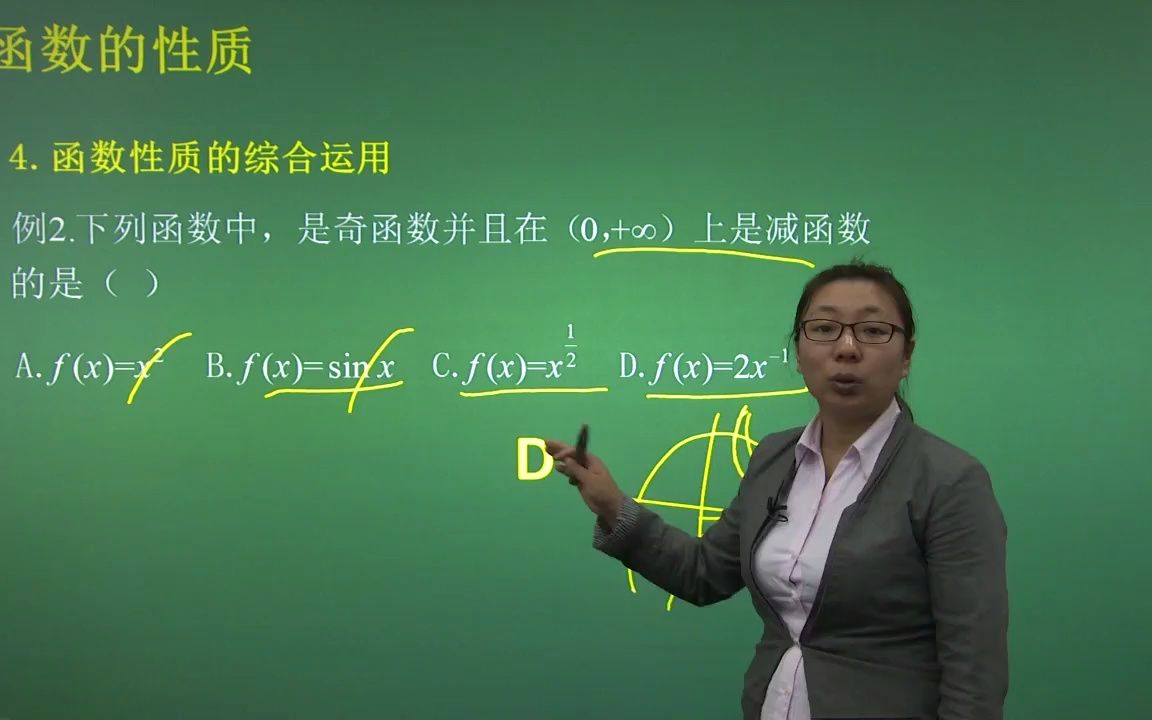 函数的性质
4. 函数性质的综合运用
例2.下列函数中，是奇函数并且在（0,+∞）上是减函数
的是（ ）
A.f(x)=x² B.f(x)=sin x C.f(x)=x^{1/2} D.f(x)=2x⁻¹
D